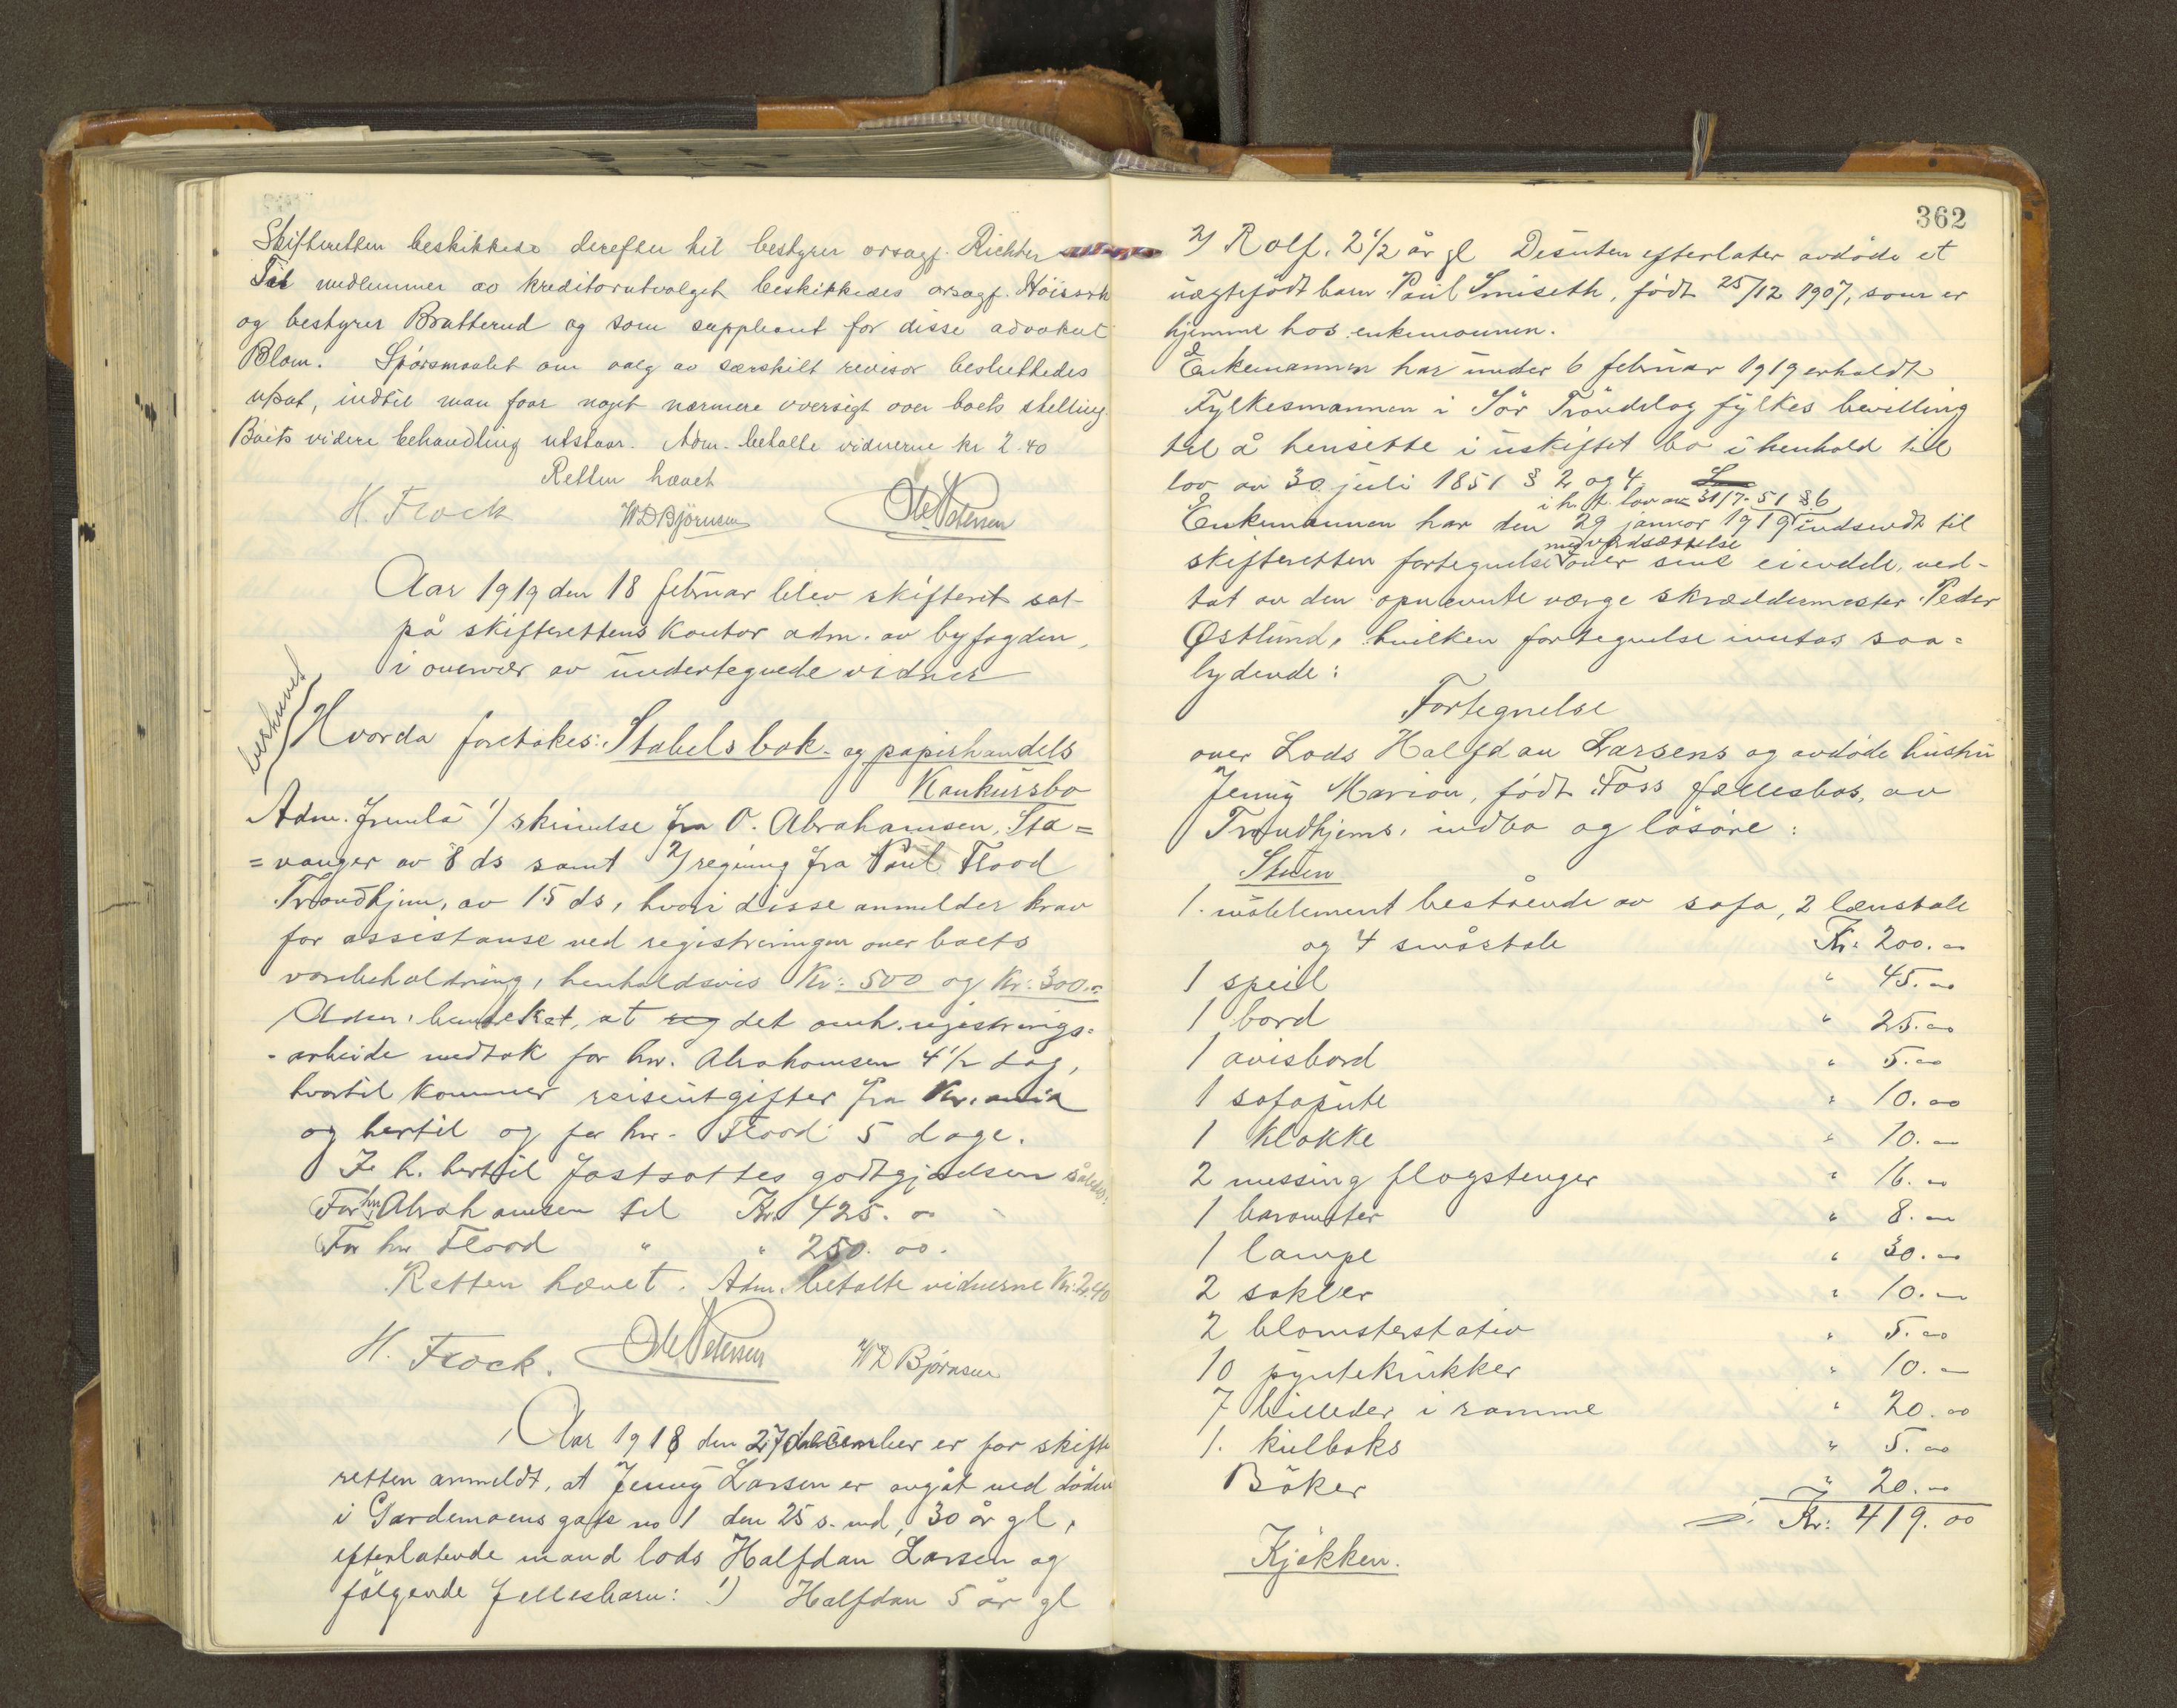 Skifteretten beskikkede derefter til bestyrer orsagf. Richter
Til medlemmer av kreditorutvalget beskikkedes orsagf.
og bestyrer Bratterud og som suppleant for disse advokat
Blom. Spörsmaalet om valg av særskilt revisor besluttedes
utsat, indtil man faar noget nærmere oversigt over boets stilling.
Boets videre behandling utstaar. Adm. betalte vidnerne kr 2.40
Retten hævet
H. Frock WDBjörnsen Ole Petersen
Aar 1919 den 18 februar blev skifteret sat
på skifterettens kontor adm. av byfogden,
i overvær av undertegnede vidner
beskrevet
Hvorda foretokes: Stabels bok- og papirhandels
Konkursbo
Adm. fremla 1) skrivelse fra O. Abrahamsen, Sta=
=vanger av 8 ds samt 2) regning fra Paul Flood
Trondhjem, av 15 ds, hvori disse anmelder krav
for assistanse ved registreringen over boets
varebeholdning, henholdsvis Kr: 500 og Kr: 300.-
Adm. bemerket, at reg det omh. registrerings=
-arbeide medtok for hr. Abrahamsen 4 1/2 dag,
hvortil kommer reiseutgifter fra Kr.ania
og hertil og for hr. Flood 5 dage.
I h. hertil fastsattes godtgjørelsen således:
For hr. Abrahamsen til Kr. 425.00
For hr Flood " " 250.00.
Retten hævet. Adm. betalte vidnerne Kr. 2.40
H. Frock. Ole Petersen WD Björnsen
Aar 1918 den 27 december er for skifte
retten anmeldt, at Jenny Larsen er avgåt ved döden
i Gardemoens gate no 1 den 25 s. md, 30 år gl,
efterlatende mand lods Halfdan Larsen og
fölgende fellesbarn: 1) Halfdan 5 år gl
362
2) Rolf, 2 1/2 år gl Desuten efterlater avdöde et
uægtefödt barn Paul Smiseth, födt 25/12 1907, som er
hjemme hos enkemannen.
Enkemannen har under 6 februar 1919 erholdt
Fylkesmannen i Sör Tröndelag fylkes bevilling
til å hensitte i uskiftet bo i henhold til
lov av 30 juli 1851 § 2 og 4.
i h. t. lov av 31/7-51 § 6
Enkemannen har den 29 januar 1919 indsendt til
med verdsættelse
skifteretten fortegnelse over sine eiendele, ved-
tat av den opnevnte verge skræddermester Peder
Østlund, hvilken fortegnelse inntas saa=
lydende:
Fortegnelse
over Lods Halfdan Larsens og avdöde hustru
Jenny Marion, födt Foss fællesbos, av
Trondhjems, indbo og lösöre:
Stuen
1. möblement bestående av sofa, 2 lænstole
og 4 småstole Kr: 200.00
1 speil " 45.00
1 bord " 25.00
1 avisbord " 5.00
1 sofapute " 10.00
1 klokke " 10.00
2 messing flagstenger " 16.00
1 barometer " 8.00
1 lampe " 30.00
2 sokler " 10.00
2 blomsterstativ " 5.00
10 pyntekrukker " 10.00
7 billeder i ramme " 20.00
1. kulboks " 5.00
Böker " 20.00
Kr: 419.00
Kjökken.